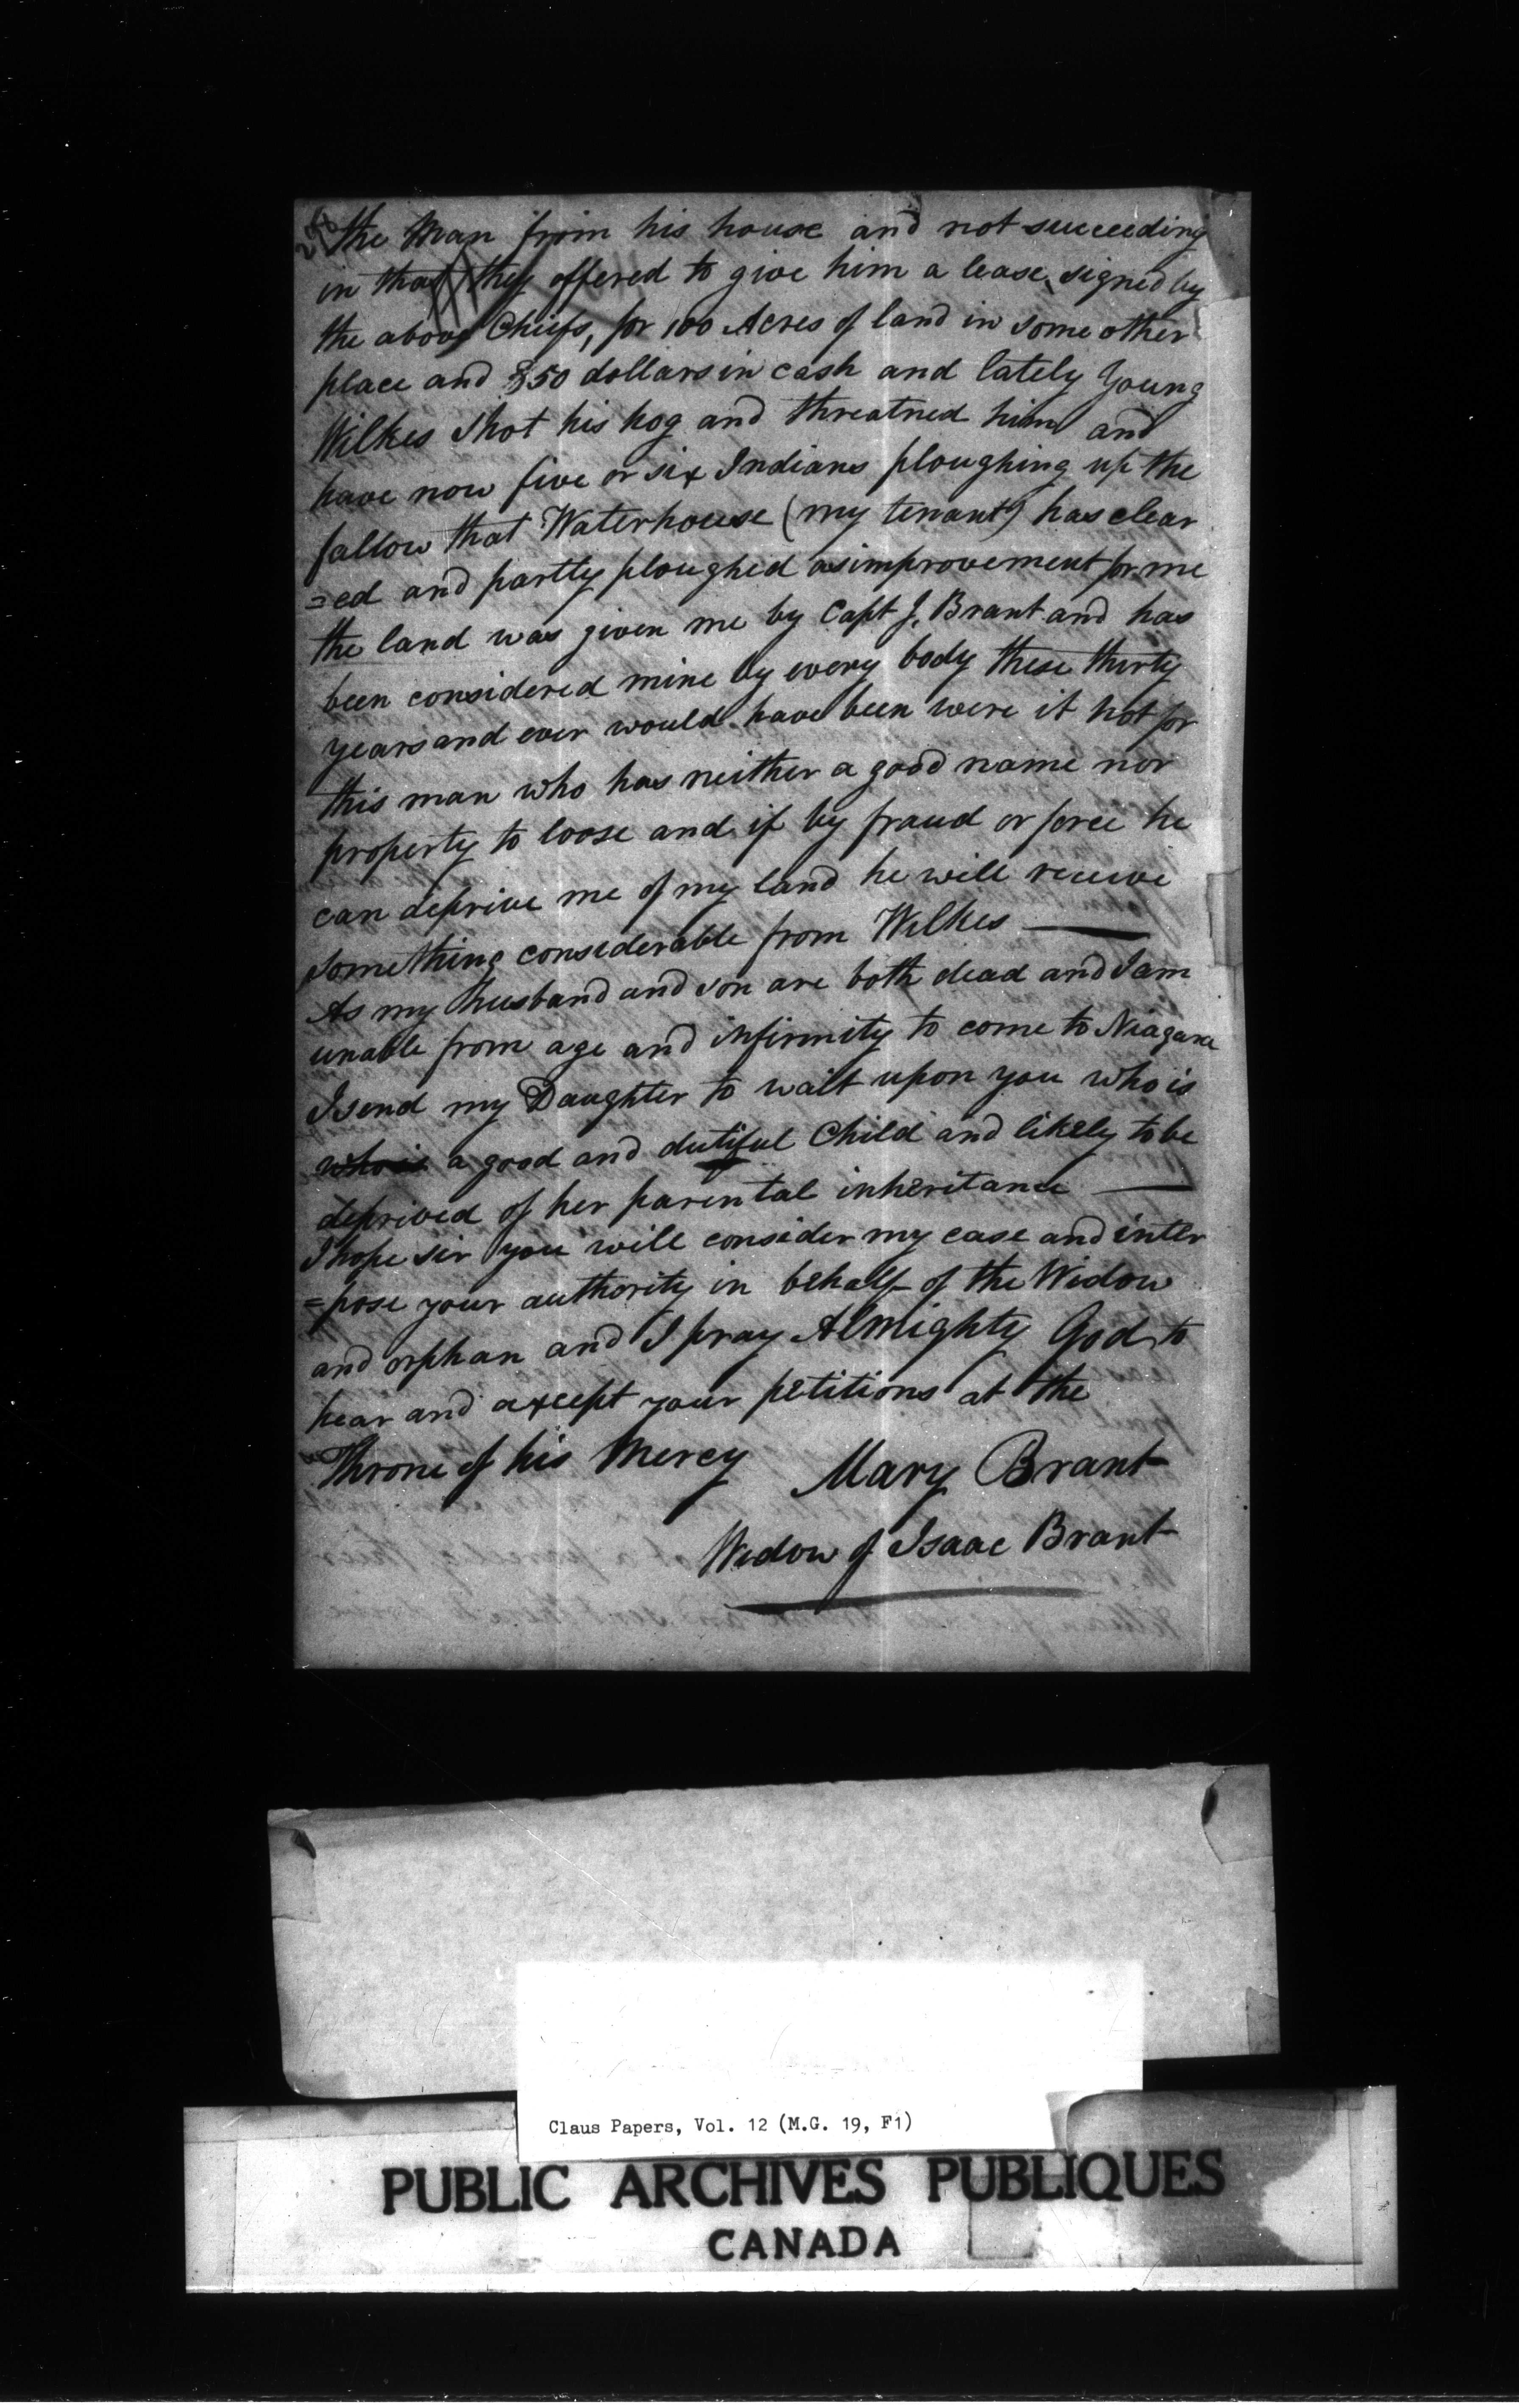 the Man from his house and not succeeding
in that they offered to give him a lease, signed by
the above Chiefs, for 100 Acres of land in some other
place and $50 dollars in cash and lately Young
Wilkes Shot his hog and threatned him and
have now five or six Indians ploughing up the
fallow that Waterhouse (my tenant) has clear
=ed and partly ploughed as improvement for me
the land was given me by Capt J. Brant and has
been considered mine by every body these thirty
years and ever would have been were it not for
this man who has neither a good name nor
property to loose and if by fraud or force he
can deprive me of my land he will receive
something considerable from Wilkes —
As my husband and son are both dead and I am
unable from age and infirmity to come to Niagara
I send my Daughter to wait upon you who is
who is a good and dutiful Child and likely to be
deprived of her parental inheritance —
I hope sir you will consider my case and inter
=pose your authority in behalf of the Widow
and orphan and I pray Almighty God to
hear and except your petitions at the
Throne of his Mercy Mary Brant
Widow of Isaac Brant
Claus Papers, Vol. 12 (M.G. 19, F1)
PUBLIC ARCHIVES PUBLIQUES
CANADA